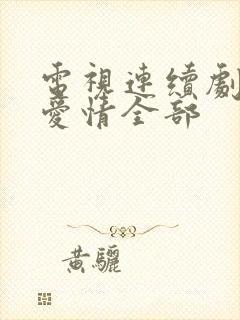 電視連續劇
愛情全部
黃驪